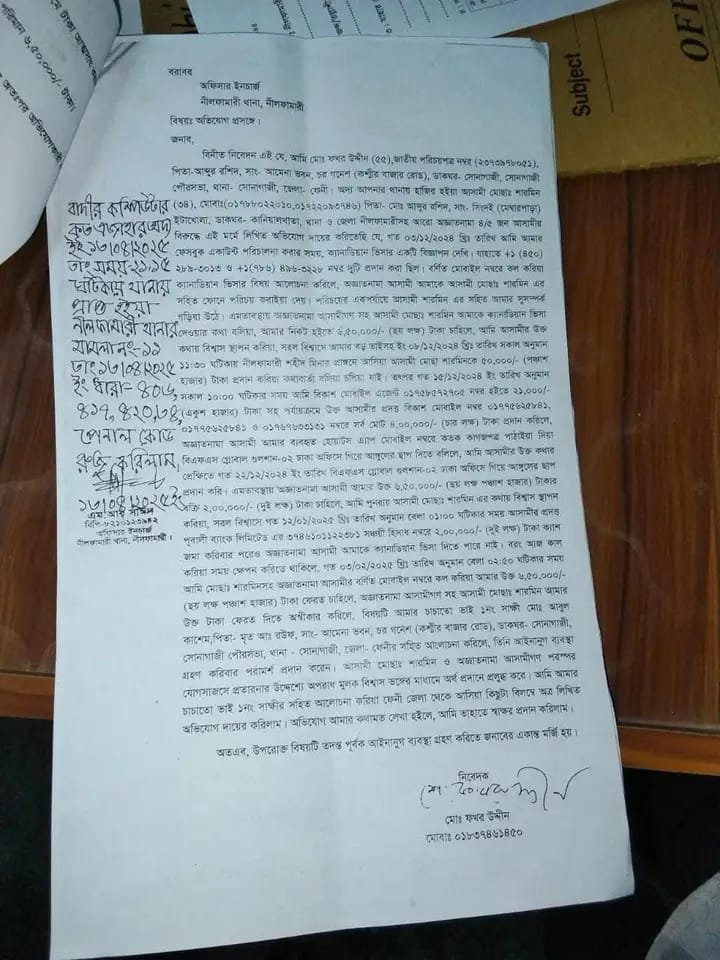 বরাবর
অফিসার ইনচার্জ
নীলফামারী থানা, নীলফামারী
বিষয়ঃ অভিযোগ প্রসঙ্গে।
জনাব,
বিনীত নিবেদন এই যে, আমি মোঃ ফখর উদ্দীন (৫৫),জাতীয় পরিচয়পত্র নম্বর (২৩৭৩৯৭৮০৫১),
পিতা-আব্দুর রশিদ, সাং- আমেনা ভবন, চর গনেশ (কশ্মীর বাজার রোড), ডাকঘর- সোনাগাজী, সোনাগাজী
পৌরসভা, থানা- সোনাগাজী, জেলা- ফেনী। অদ্য আপনার থানায় হাজির হইয়া আসামী মোছাঃ শারমিন
(৩৪), মোবাঃ(০১৭৮৮০২২০১০,০১৭২২০৯৩৭৪৬) পিতা- মোঃ আব্দুর রশিদ, সাং- সিংদই (মেম্বারপাড়া)
ইটাখোলা, ডাকঘর- কানিয়ালখাতা, থানা ও জেলা নীলফামারীসহ আরো অজ্ঞাতনামা ৪/৫ জন আসামীর
বিরুদ্ধে এই মর্মে লিখিত অভিযোগ দায়ের করিতেছি যে, গত ০৩/১২/২০২৪ খ্রিঃ তারিখ আমি আমার
ফেসবুক একাউন্ট পরিচালনা করার সময়, ক্যানাডিয়ান ভিসার একটি বিজ্ঞাপন দেখি। যাহাতে +১ (৪৫০)
২৮৯-৩০১৩ ও +১(৭৮৬) ৪৯৮-৩২২৮ নম্বর দুটি প্রদান করা ছিল। বর্ণিত মোবাইল নম্বরে কল করিয়া
ক্যানাডিয়ান ভিসার বিষয় আলোচনা করিলে, অজ্ঞাতনামা আসামী আমাকে আসামী মোছাঃ শারমিন এর
সহিত ফোনে পরিচয় করাইয়া দেয়। পরিচয়ের একপর্যায়ে আসামী শারমিন এর সহিত আমার সুসম্পর্ক
গড়িয়া উঠে। এমতাবস্থায় অজ্ঞাতনামা আসামীগণ সহ আসামী মোছাঃ শারমিন আমাকে ক্যানাডিয়ান ভিসা
দেওয়ার কথা বলিয়া, আমার নিকট হইতে ৬,৫০,০০০/- (ছয় লক্ষ) টাকা চাহিলে, আমি আসামীর উক্ত
কথায় বিশ্বাস স্থাপন করিয়া, সরল বিশ্বাসে আমার বড় ভাইসহ ইং ০৮/১২/২০২৪ খ্রিঃ তারিখ সকাল অনুমান
১১:৩০ ঘটিকায় নীলফামারী শহীদ মিনার প্রাঙ্গনে আসিয়া আসামী মোছা শারমিনকে ৫০,০০০/- (পঞ্চাশ
হাজার) টাকা প্রদান করিয়া কথাবার্তা বলিয়া চলিয়া যাই। তৎপর গত ১৫/১২/২০২৪ ইং তারিখ অনুমান
সকাল ১০:০০ ঘটিকার সময় আমি বিকাশ মোবাইল এজেন্ট ০১৭৫৮৫৭২৭০৫ নম্বর হইতে ২১,০০০/-
(একুশ হাজার) টাকা সহ পর্যায়ক্রমে উক্ত আসামীর প্রদত্ত বিকাশ মোবাইল নম্বর ০১৭৭৫৬২৫৮৪১,
০১৭৭৫৬২৫৮৪১ ও ০১৭৬৭৬৩৩১৩১ নম্বরে সর্ব মোট ৪,০০,০০০/- (চার লক্ষ) টাকা প্রদান করিলে,
অজ্ঞাতনামা আসামী আমার ব্যবহৃত হোয়াটস এ্যাপ মোবাইল নম্বরে কতক কাগজপত্র পাঠাইয়া দিয়া
বিএফএস গ্লোবাল গুলশান-০২ ঢাকা অফিসে গিয়ে আঙ্গুলের ছাপ দিতে বলিলে, আমি আসামীর উক্ত কথার
প্রেক্ষিতে গত ২২/১২/২০২৪ ইং তারিখ বিএফএস গ্লোবাল গুলশান-০২ ঢাকা অফিসে গিয়ে আঙ্গুলের ছাপ
প্রদান করি। এমতাবস্থায় অজ্ঞাতনামা আসামী আমার উক্ত ৬,৫০,০০০/- (ছয় লক্ষ পঞ্চাশ হাজার) টাকার
২,০০,০০০/- (দুই লক্ষ) টাকা চাহিলে, আমি পুনরায় আসামী মোছাঃ শারমিন এর কথায় বিশ্বাস স্থাপন
করিয়া, সরল বিশ্বাসে গত ১২/০১/২০২৫ খ্রিঃ তারিখ অনুমান বেলা ০১:০০ ঘটিকার সময় আসামীর প্রদত্ত
পূবালী ব্যাংক লিমিটেড এর ৩৭৪৬১০১১২২৩৮১ সঞ্চয়ী হিসাব নম্বরে ২,০০,০০০/- (দুই লক্ষ) টাকা ক্যাশ
জমা করিবার পরেও অজ্ঞাতনামা আসামী আমাকে ক্যানাডিয়ান ভিসা দিতে পারে নাই। বরং আজ কাল
করিয়া সময় ক্ষেপন করিতে থাকিলে, গত ০৩/০২/২০২৫ খ্রিঃ তারিখ অনুমান বেলা ০২:৫০ ঘটিকার সময়
আমি মোছাঃ শারমিনসহ অজ্ঞাতনামা আসামীর বর্ণিত মোবাইল নম্বরে কল করিয়া আমার উক্ত ৬,৫০,০০০/-
(ছয় লক্ষ পঞ্চাশ হাজার) টাকা ফেরত চাহিলে, অজ্ঞাতনামা আসামীগণ সহ আসামী মোছাঃ শারমিন আমার
উক্ত টাকা ফেরত দিতে অস্বীকার করিলে, বিষয়টি আমার চাচাতো ভাই ১নং সাক্ষী মোঃ আবুল
কাশেম,পিতা- মৃত আঃ রউফ, সাং- আমেনা ভবন, চর গনেশ (কশ্মীর বাজার রোড), ডাকঘর- সোনাগাজী,
সোনাগাজী পৌরসভা, থানা - সোনাগাজী, জেলা- ফেনীর সহিত আলোচনা করিলে, তিনি আইনানুগ ব্যবস্থা
গ্রহণ করিবার পরামর্শ প্রদান করেন। আসামী মোছাঃ শারমিন ও অজ্ঞাতনামা আসামীগণ পরস্পর
যোগসাজসে প্রতারনার উদ্দেশ্যে অপরাধ মূলক বিশ্বাস ভঙ্গের মাধ্যমে অর্থ প্রদানে প্রলুব্ধ করে। আমি আমার
চাচাতো ভাই ১নং সাক্ষীর সহিত আলোচনা করিয়া ফেনী জেলা থেকে আসিয়া কিছুটা বিলম্বে অত্র লিখিত
অভিযোগ দায়ের করিলাম। অভিযোগ আমার কথামত লেখা হইলে, আমি তাহাতে স্বাক্ষর প্রদান করিলাম।
অতএব, উপরোক্ত বিষয়টি তদন্ত পূর্বক আইনানুগ ব্যবস্থা গ্রহণ করিতে জনাবের একান্ত মর্জি হয়।
নিবেদক
মোঃ ফখর উদ্দীন
মোবাঃ ০১৮৩৭৪৬১৪৫০
বাদীর কম্পিউটার
কৃত এজাহার
ইং ১৩/০৪/২০২৫
তাং সময়-২১:১৫
ঘটিকায় থানায়
প্রাপ্ত হইয়া
নীলফামারী থানার
মামলা নং-১১
তাং ১৩/০৪/২০২৫
ইং ধারা- ৪০৬,
৪১৭, ৪২০, ৩৪,
পেনাল কোড
রুজু করিলাম,
১৩/০৪/২০২৫ইং
এম আর সাঈদ
বিপি-৮২১০১২৩৯৪২
অফিসার ইনচার্জ
নীলফামারী থানা, নীলফামারী।
পরিমান ৬,৫০,০০০/- টাকা।
Subject
OFF